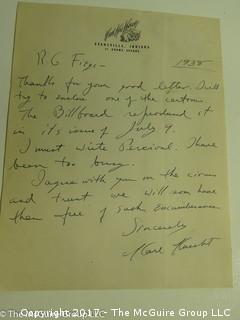 Karl Kae Knecht
EVANSVILLE, INDIANA
R G Figge - 1938
Thanks for your good letter. I will
try to enclose one of the cartoons
The Billboard reproduced it
in its issue of July 9.
I must write Percival. I have
been too busy.
I agree with you on the circus
and trust we will soon have
them free of such Encumberances
Sincerely
Karl Knecht
Copyright 2017 - The McGuire Group LLC